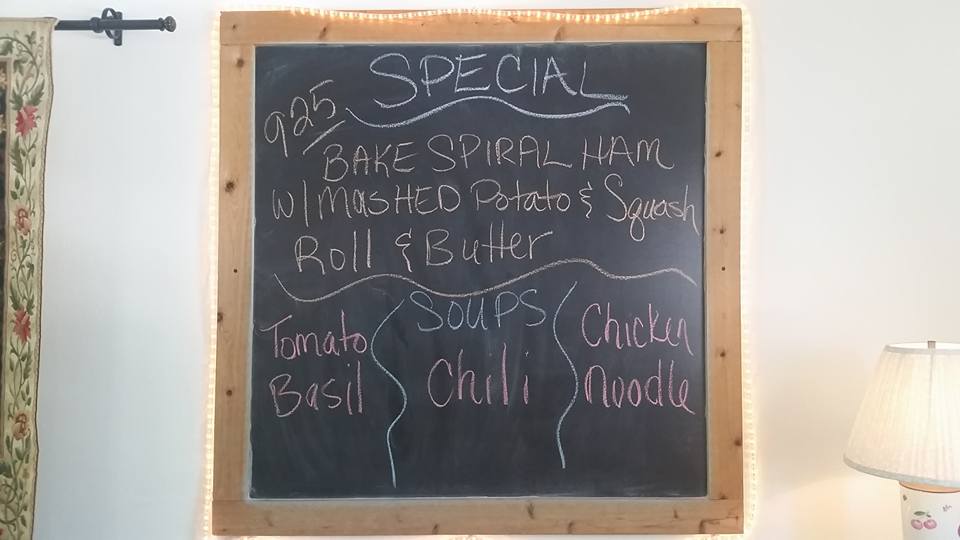 SPECIAL
925
BAKE SPIRAL HAM
W/MASHED Potato & Squash
Roll & Butter
SOUPS
Tomato
Basil
Chili
Chicken
Noodle